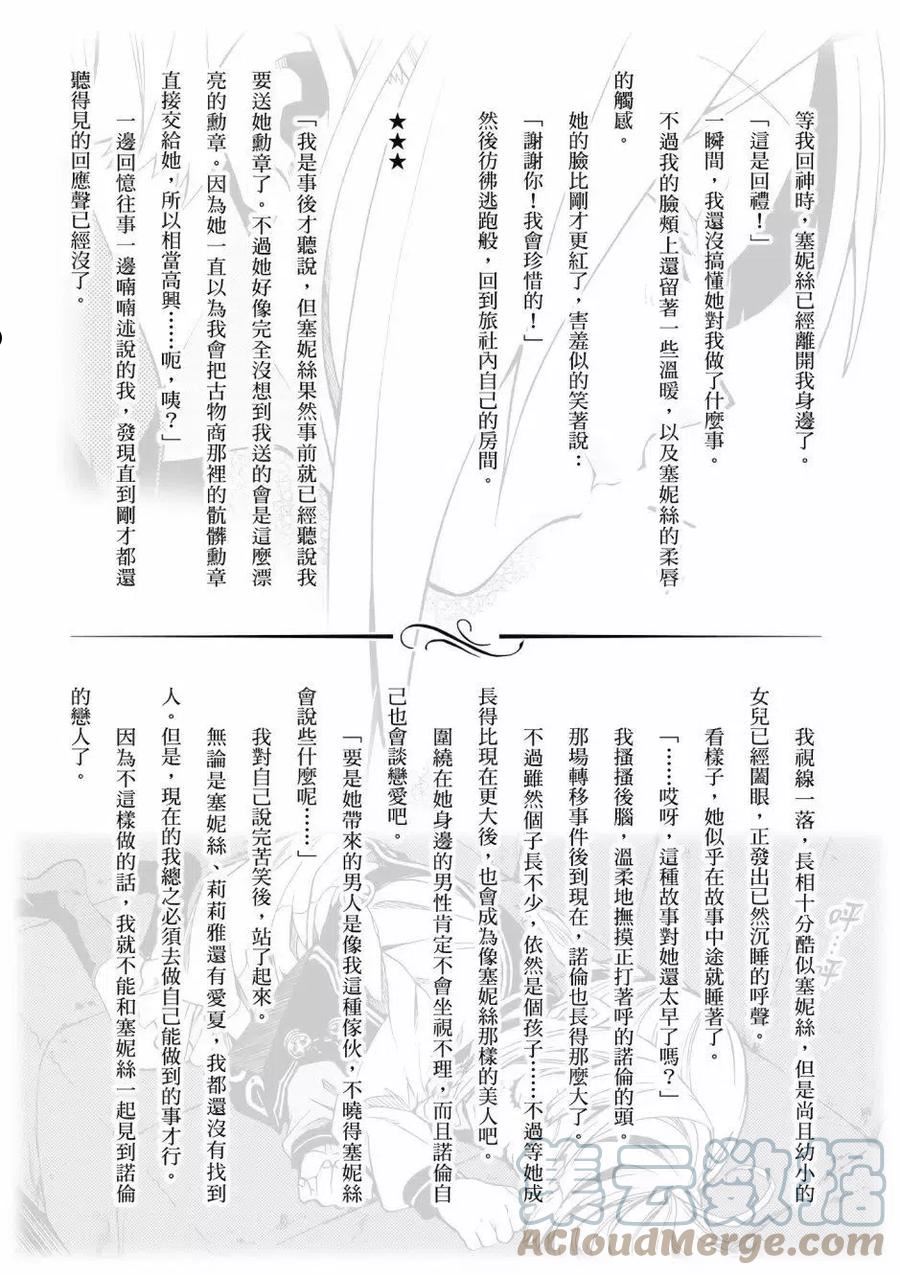 等我回神時，塞妮絲已經離開我身邊了。
「這是回禮！」
一瞬間，我還沒搞懂她對我做了什麼事。
不過我的臉頰上還留著一些溫暖，以及塞妮絲的柔唇
的觸感。
她的臉比剛才更紅了，害羞似的笑著說：
「謝謝你！我會珍惜的！」
然後彷彿逃跑般，回到旅社內自己的房間。
★★★
「我是事後才聽說，但塞妮絲果然事前就已經聽說我
要送她勳章了。不過她好像完全沒想到我送的會是這麼漂
亮的勳章。因為她一直以為我會把古物商那裡的骯髒勳章
直接交給她，所以相當高興……呃，咦？」
一邊回憶往事一邊喃喃述說的我，發現直到剛才都還
聽得見的回應聲已經沒了。
我視線一落，長相十分酷似塞妮絲，但是尚且幼小的
女兒已經闔眼，正發出已然沉睡的呼聲。
看樣子，她似乎在故事中途就睡著了。
「……哎呀，這種故事對她還太早了嗎？」
我搔搔後腦，溫柔地撫摸正打著呼的諾倫的頭。
那場轉移事件後到現在，諾倫也長得那麼大了。
不過雖然個子長不少，依然是個孩子……不過等她成
長得比現在更大後，也會成為像塞妮絲那樣的美人吧。
圍繞在她身邊的男性肯定不會坐視不理，而且諾倫自
己也會談戀愛吧。
「要是她帶來的男人是像我這種傢伙，不曉得塞妮絲
會說些什麼呢……」
我對自己說完苦笑後，站了起來。
無論是塞妮絲、莉莉雅還有愛夏，我都還沒有找到
人。但是，現在的我總之必須去做自己能做到的事才行。
因為不這樣做的話，我就不能和塞妮絲一起見到諾倫
的戀人了。
呼…呼
集云数据
ACloudMerge.com